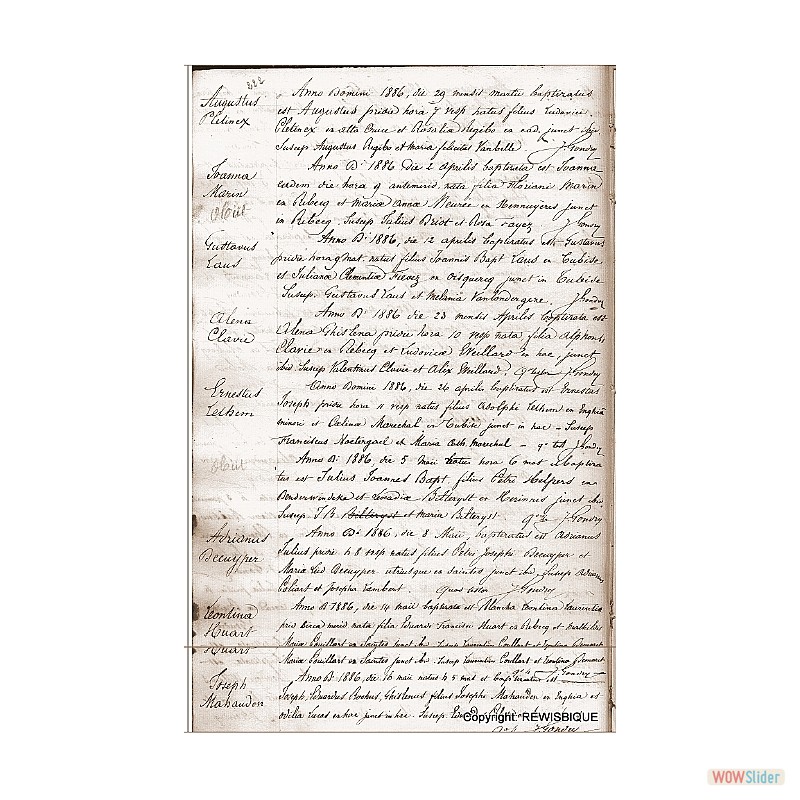 222
Augustus
Pletinex
Anno Domini 1886, die 29 mensis martii baptizatus
est Augustus pridie hora 7 vesp natus filius Ludovici
Pletinex ex alta Cruce et Rosalia Regibo ex ead. junct ibi
Suscep Augustus Regibo et Maria felicitas Vanbelle J Gondry
Joanna
Marin
Obiit
Anno Di 1886 die 2 aprilis baptizata est Joanna
eadem die hora 9 antemerid. nata filia Floriani Marin
ex Rebecq et Mariæ Annæ Meurée ex Hennuyeres junct
in Rebecq. Suscep Julius Briot et Rosa Fayez J Gondry
Gustavus
Laus
Anno Di 1886, die 12 aprilis baptizatus est Gustavus
pridie hora 9 mat. natus filius Joannis Bapt Laus ex Tubise
et Juliana Clementia Fievez ex Oisquercq junct in Tubise
Suscep. Gustavus Laus et Melania Vanlondergere. J Gondry
Alena
Clavie
Anno Di 1886 die 23 mensis Aprilis baptizata est
Alena Ghislena pridie hora 10 vesp nata, filia Alphonsi
Clavie ex Rebecq et Ludovica Weillard ex hac, junct
ibi. Suscep Valentinus Clavie et Alix Weillard. J Gondry
Ernestus
Lelhem
Anno Domini 1886, die 26 aprilis baptizatus est Ernestus
Joseph pridie hora 11 vesp natus filius Adolphi Lelhem ex Enghia
minori et Marechal ex Tubise junct in hac - Suscep
Franciscus Noctergael et Maria Cath Marechal - J Gondry
Obiit
Annus Di 1886, die 5 Maii hora 6 mat baptiza
tus est Julius Joannes Bapt. filius Petri Helpers ex
Denderwindeke et Leocadiæ Bitteryst ex Herinnes junct ibi
Suscep J.B. Bitteryst et Maria Bitteryst J Gondry
Adrianus
Decuyper
Anno Di 1886, die 8 Maii, baptizatus est Adrianus
Julius pridie h 8 vesp natus filius Petri Josephi Decuyper et
Maria Lud Decuyper utriusque ex Saintes junct ibi, Suscep Adrianus
Coliart et Josepha Lambert. Quos testor J Gondry
Leontina
Huart
Huart
Anno D 1886, die 14 maii baptizata est Blancha Leontina Laurentia
prid nata filia Eduardi Francisci Huart ex Rebecq et Mathildis
Mariæ Couillart ex Saintes junct ibi Suscep Laurentin Coullart et Leontina
Mariæ Couillart ex Saintes junct ibi. Suscep Laurentin Coullart et Leontina
J Gondry
Joseph
Mahauden
Anno Di 1886, die 16 maii natus h 5 mat et baptizatus est
Joseph, Eduardus Rochus, Ghislenus filius Josephi Mahauden ex Enghia et
Odilia Lucas ex hac junct in hac. Suscep.
J Gondry
Copyright: REWISBIQUE
WOWSlider